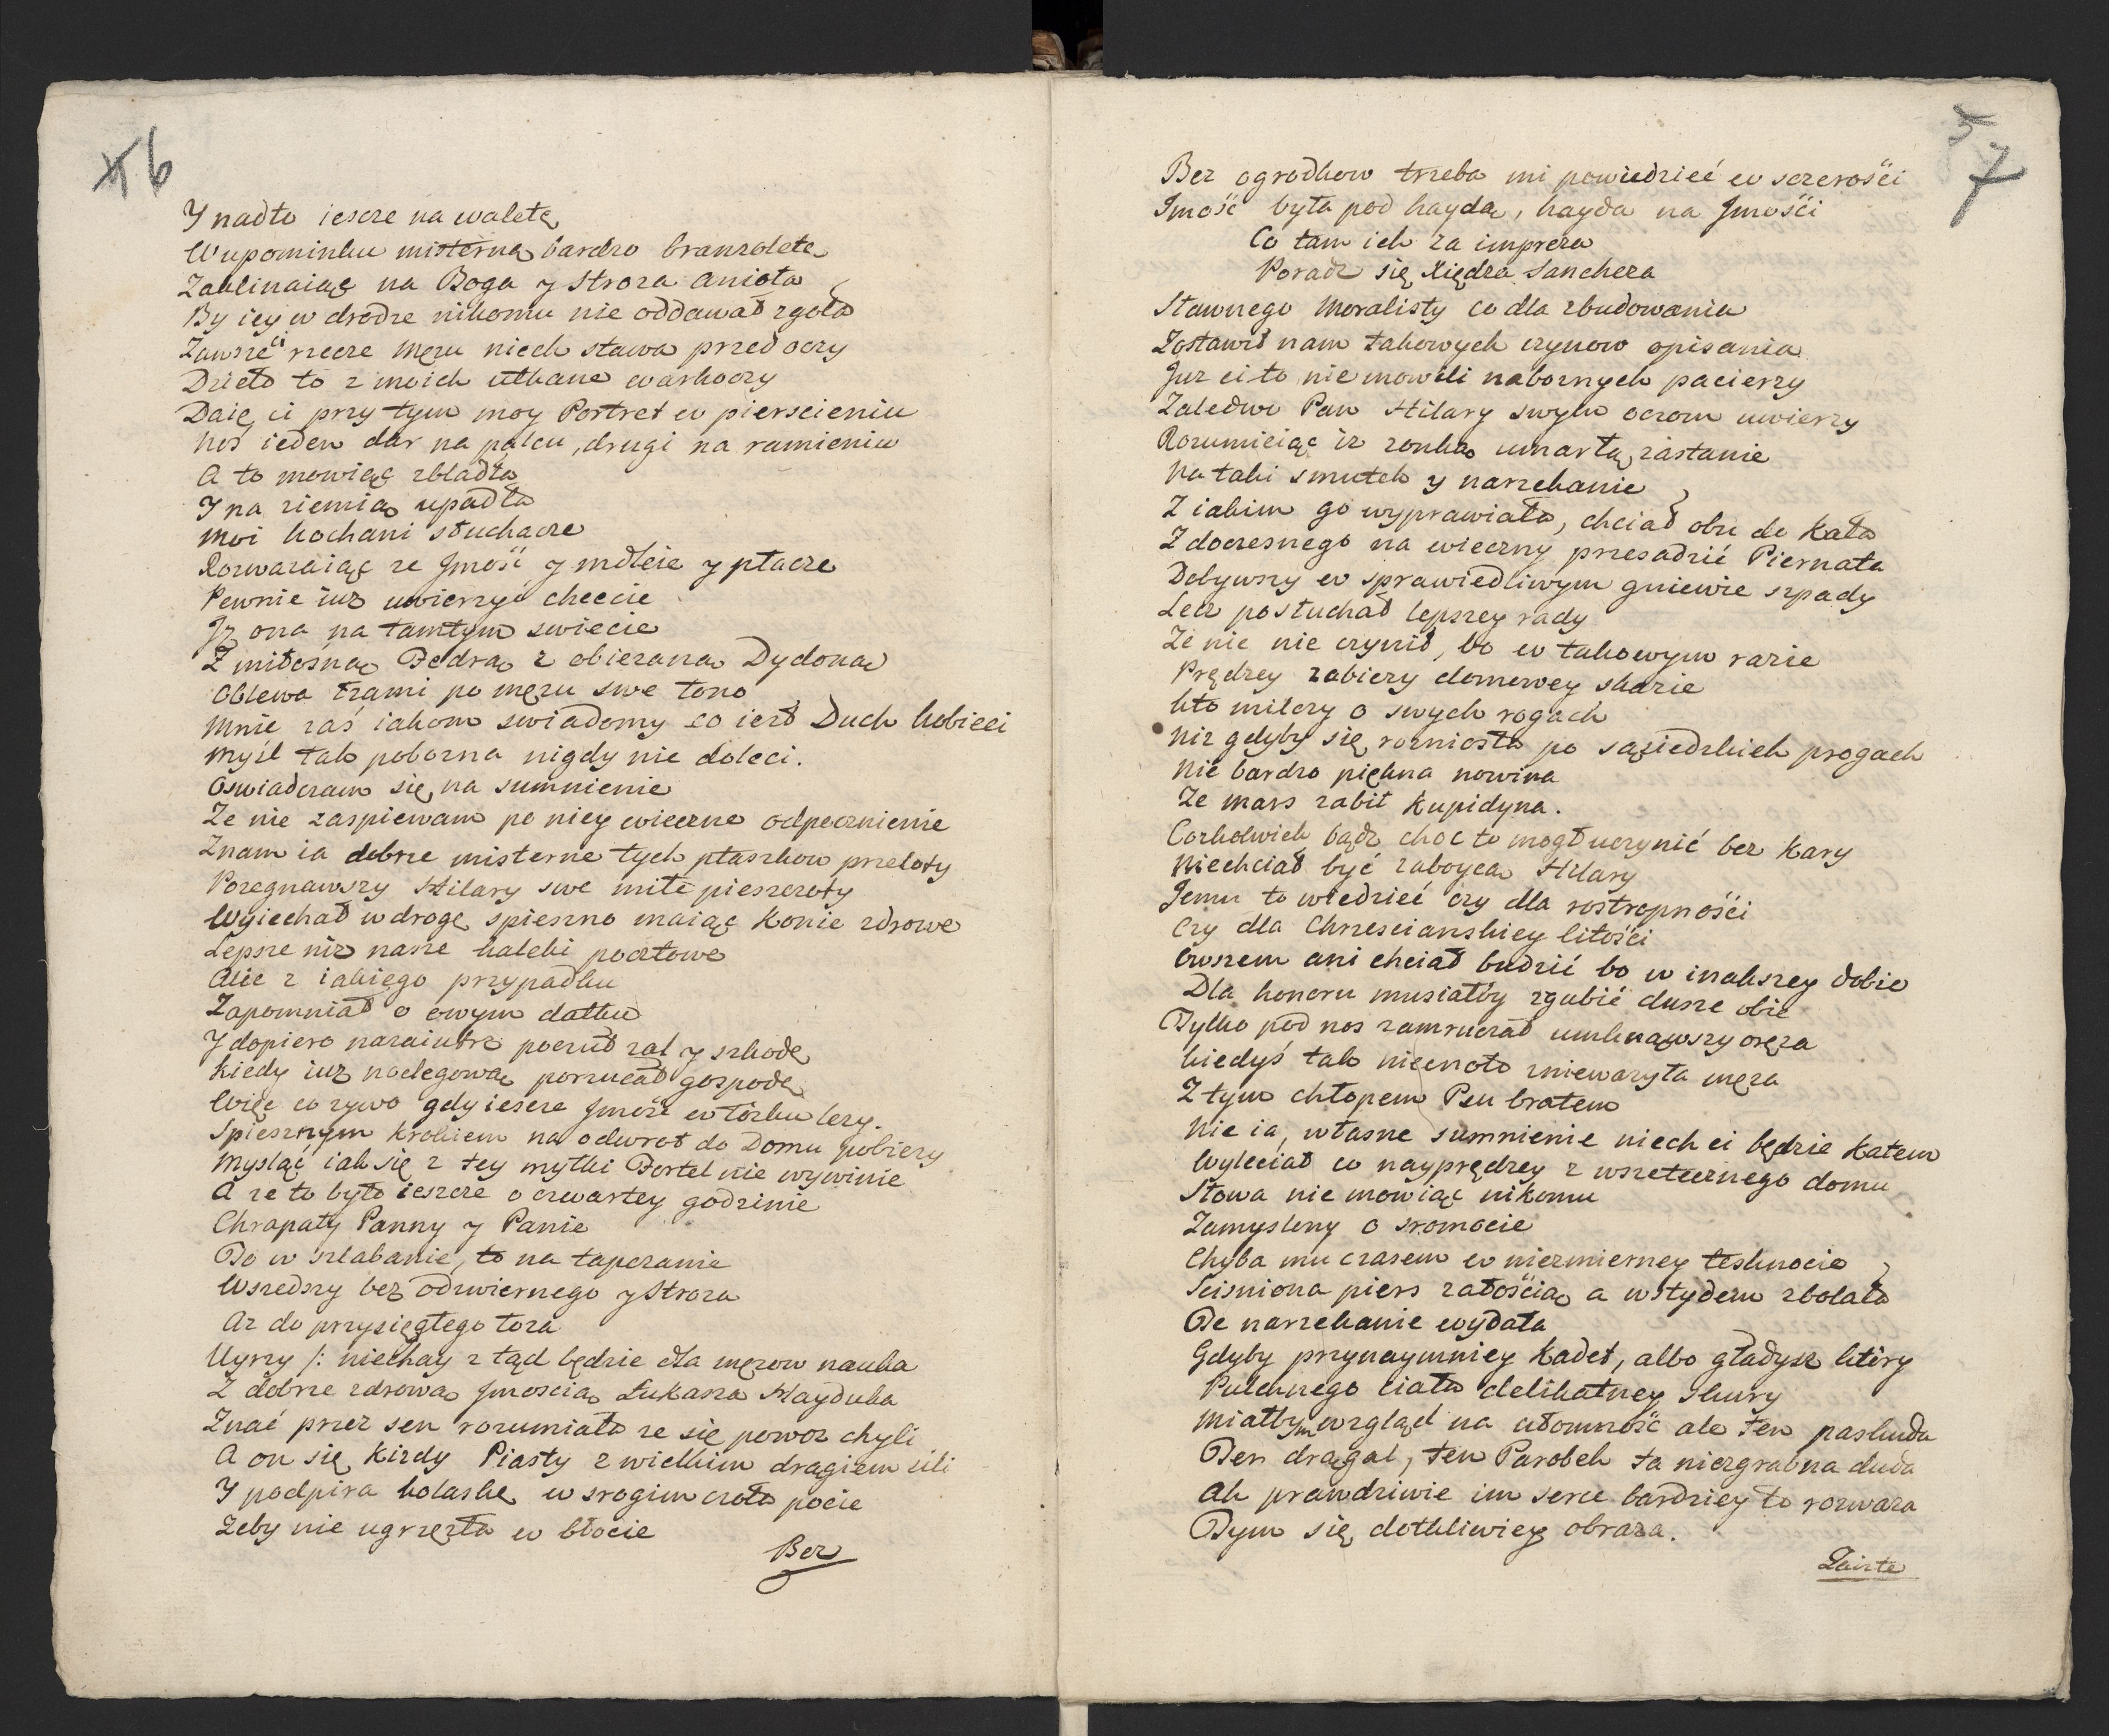 6
Y nadto iescze na waletę
W upominku misterną bardzo branzoletę
Zaklinaiąc na Boga y Stroza Anioła
By iey w drodze nikomu nie oddawał zgoła
Zawsze ci rzecze męzu niech stawa przed oczy
Dzieło to z moich utkane warkoczy
Daię ci przy tym moy Portret w pierscieniu
Nos ieden dar na palcu, drugi na ramieniu
A to mowiąc zbladła
Y na ziemią upadła
Moi kochani słuchacze
Rozwazaiąc ze Jmość y mdleie y płacze
Pewnie iuz uwierzyć chcecie
Jz ona na tamtym swiecie
Z miłosną Fedrą z obierana Dydoną
Oblewa łzami po męzu swe łono
Mnie zaś iakom swiadomy co iest Duch kobieci
Myśl tak pobozna nigdy nie doleci.
Oswiadczam się na sumnienie
Ze nie zaspiewam po niey wieczne odpocznienie
Znam ia dobrze misterne tych ptaszkow przeloty
Pozegnawszy Hilary swe miłe pieszczoty
Wyiechał w drogę spieszno maiąc konie zdrowe
Lepsze niz nasze kaleki pocztowe
Alie z iakiego przypadku
Zapomniał o owym datku
Y dopiero nazaiutrz poczuł zal y szkodę
Kiedy iuz noclegową porzucał gospodę
Więc co zywo gdy iescze Jmość w łózku lezy.
Spiesznym krokiem na odwrot do Domu pobiezy
Mysląc iak się z tey mytki Fortel nie wywinie
A ze to było ieszcze o czwartey godzinie
Chrapały Panny y Panie
To w szlabanie, to na tapczanie
Wszedszy bez odzwiernego y Stroza
Az do przysięgłego łoza
Uyrzy /: niechay z tąd będzie dla męzow nauka
Z dobrze zdrową Jmoscią Łukasza Hayduka
Znać przez sen rozumiała ze się powoz chyli
A on się kiedy Piasty z wielkim drągiem sili
Y podpira kolaskę w srogim czoła pocie
Zeby nie ugrzęzła w błocie
Bez
5
7
Bez ogrodkow trzeba mi powiedzieć w sczerości
Jmość była pod haydą, hayda na Jmości
Co tam ich za impreza
Poradz się Xiędza Sancheza
Sławnego Moralisty co dla zbudowania
Zostawił nam takowych czynow opisania
Juz ci to nie mowili naboznych pacierzy
Zaledwo Pan Hilary swym oczom uwierzy
Rozumieiąc iz zonką umarłą zastanie
Na taki smutek y narzekanie
Z iakim go wyprawiała, chciał obu do kata
Z doczesnego na wieczny przesadzić Piernata
Dobywszy w sprawiedliwym gniewie szpady
Lecz posłuchał lepszey rady
Ze nic nie czynił, bo w takowym razie
Prędzey zabiezy domowey skazie
Kto milczy o swych rogach
Niz gdyby się rozniosła po sąsiedzkich progach
Nie bardzo piękna nowina
Ze Mars zabił Kupidyna.
Cozkolwiek bądz choc to mogł uczynić bez kary
Niechciał być zaboycą Hilary
Jemu to wiedzieć czy dla rostropności
Czy dla Chrzescianskiey litości
Owszem ani chciał budzić bo w inakszey dobie
Dla honoru musiałby zgubić dusze obie
Tylko pod nos zamruczał umknąwszy oręza
Kiedyś tak niecnoto zniewazyła męza
Z tym chłopem Psu bratem
Nie ia, własne sumnienie niech ci będzie katem
Wyleciał co nayprędzey z wszetecznego domu
Słowa nie mowiąc nikomu
Zamyslony o sromocie
Chyba mu czasem w niezmierney tesknocie
Scisniona piers załością a wstydem zbolała
Te narzekanie wydała
Gdyby przynaymniey kadet, albo gładysz który
Pulchnego ciała delikatney skury
Miałbym wzgląd na ułomność ale ten paskuda
Ten drągal, ten Parobek ta niezgrabna duda
Ah prawdziwie im serce bardziey to rozwaza
Tym się dotkliwiey obraza.